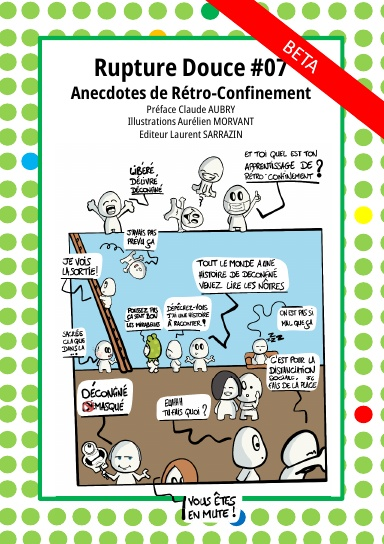 BETA
Rupture Douce #07
Anecdotes de Rétro-Confinement
Préface Claude AUBRY
Illustrations Aurélien MORVANT
Editeur Laurent SARRAZIN
LIBÉRÉ
DÉLIVRÉ
DÉCONFINÉ
?
ET TOI QUEL EST TON
APPRENTISSAGE DE
RÉTRO-CONFINEMENT ?
J'AVAIS PAS
PRÉVU ÇA
JE VOIS
LA SORTIE !
TOUT LE MONDE A UNE
HISTOIRE DE DECONFINÉ
VENEZ LIRE LES NÔTRES
POUSSEZ PAS
ÇA SENT BON
LES MIRABELLES
DÉPÊCHEZ-VOUS
J'AI UNE HISTOIRE
À RACONTER !
ON EST PAS SI
MAL QUE ÇA
SACRÉE
CLAQUE
DANS LA
ZZZ
C'EST POUR LA
DISTANCIATION
SOCIALE. JE
FAIS DE LA PLACE
DÉCONFINÉ
MASQUÉ
EUHHH
TU FAIS QUOI ?
VOUS ÊTES
EN MUTE !